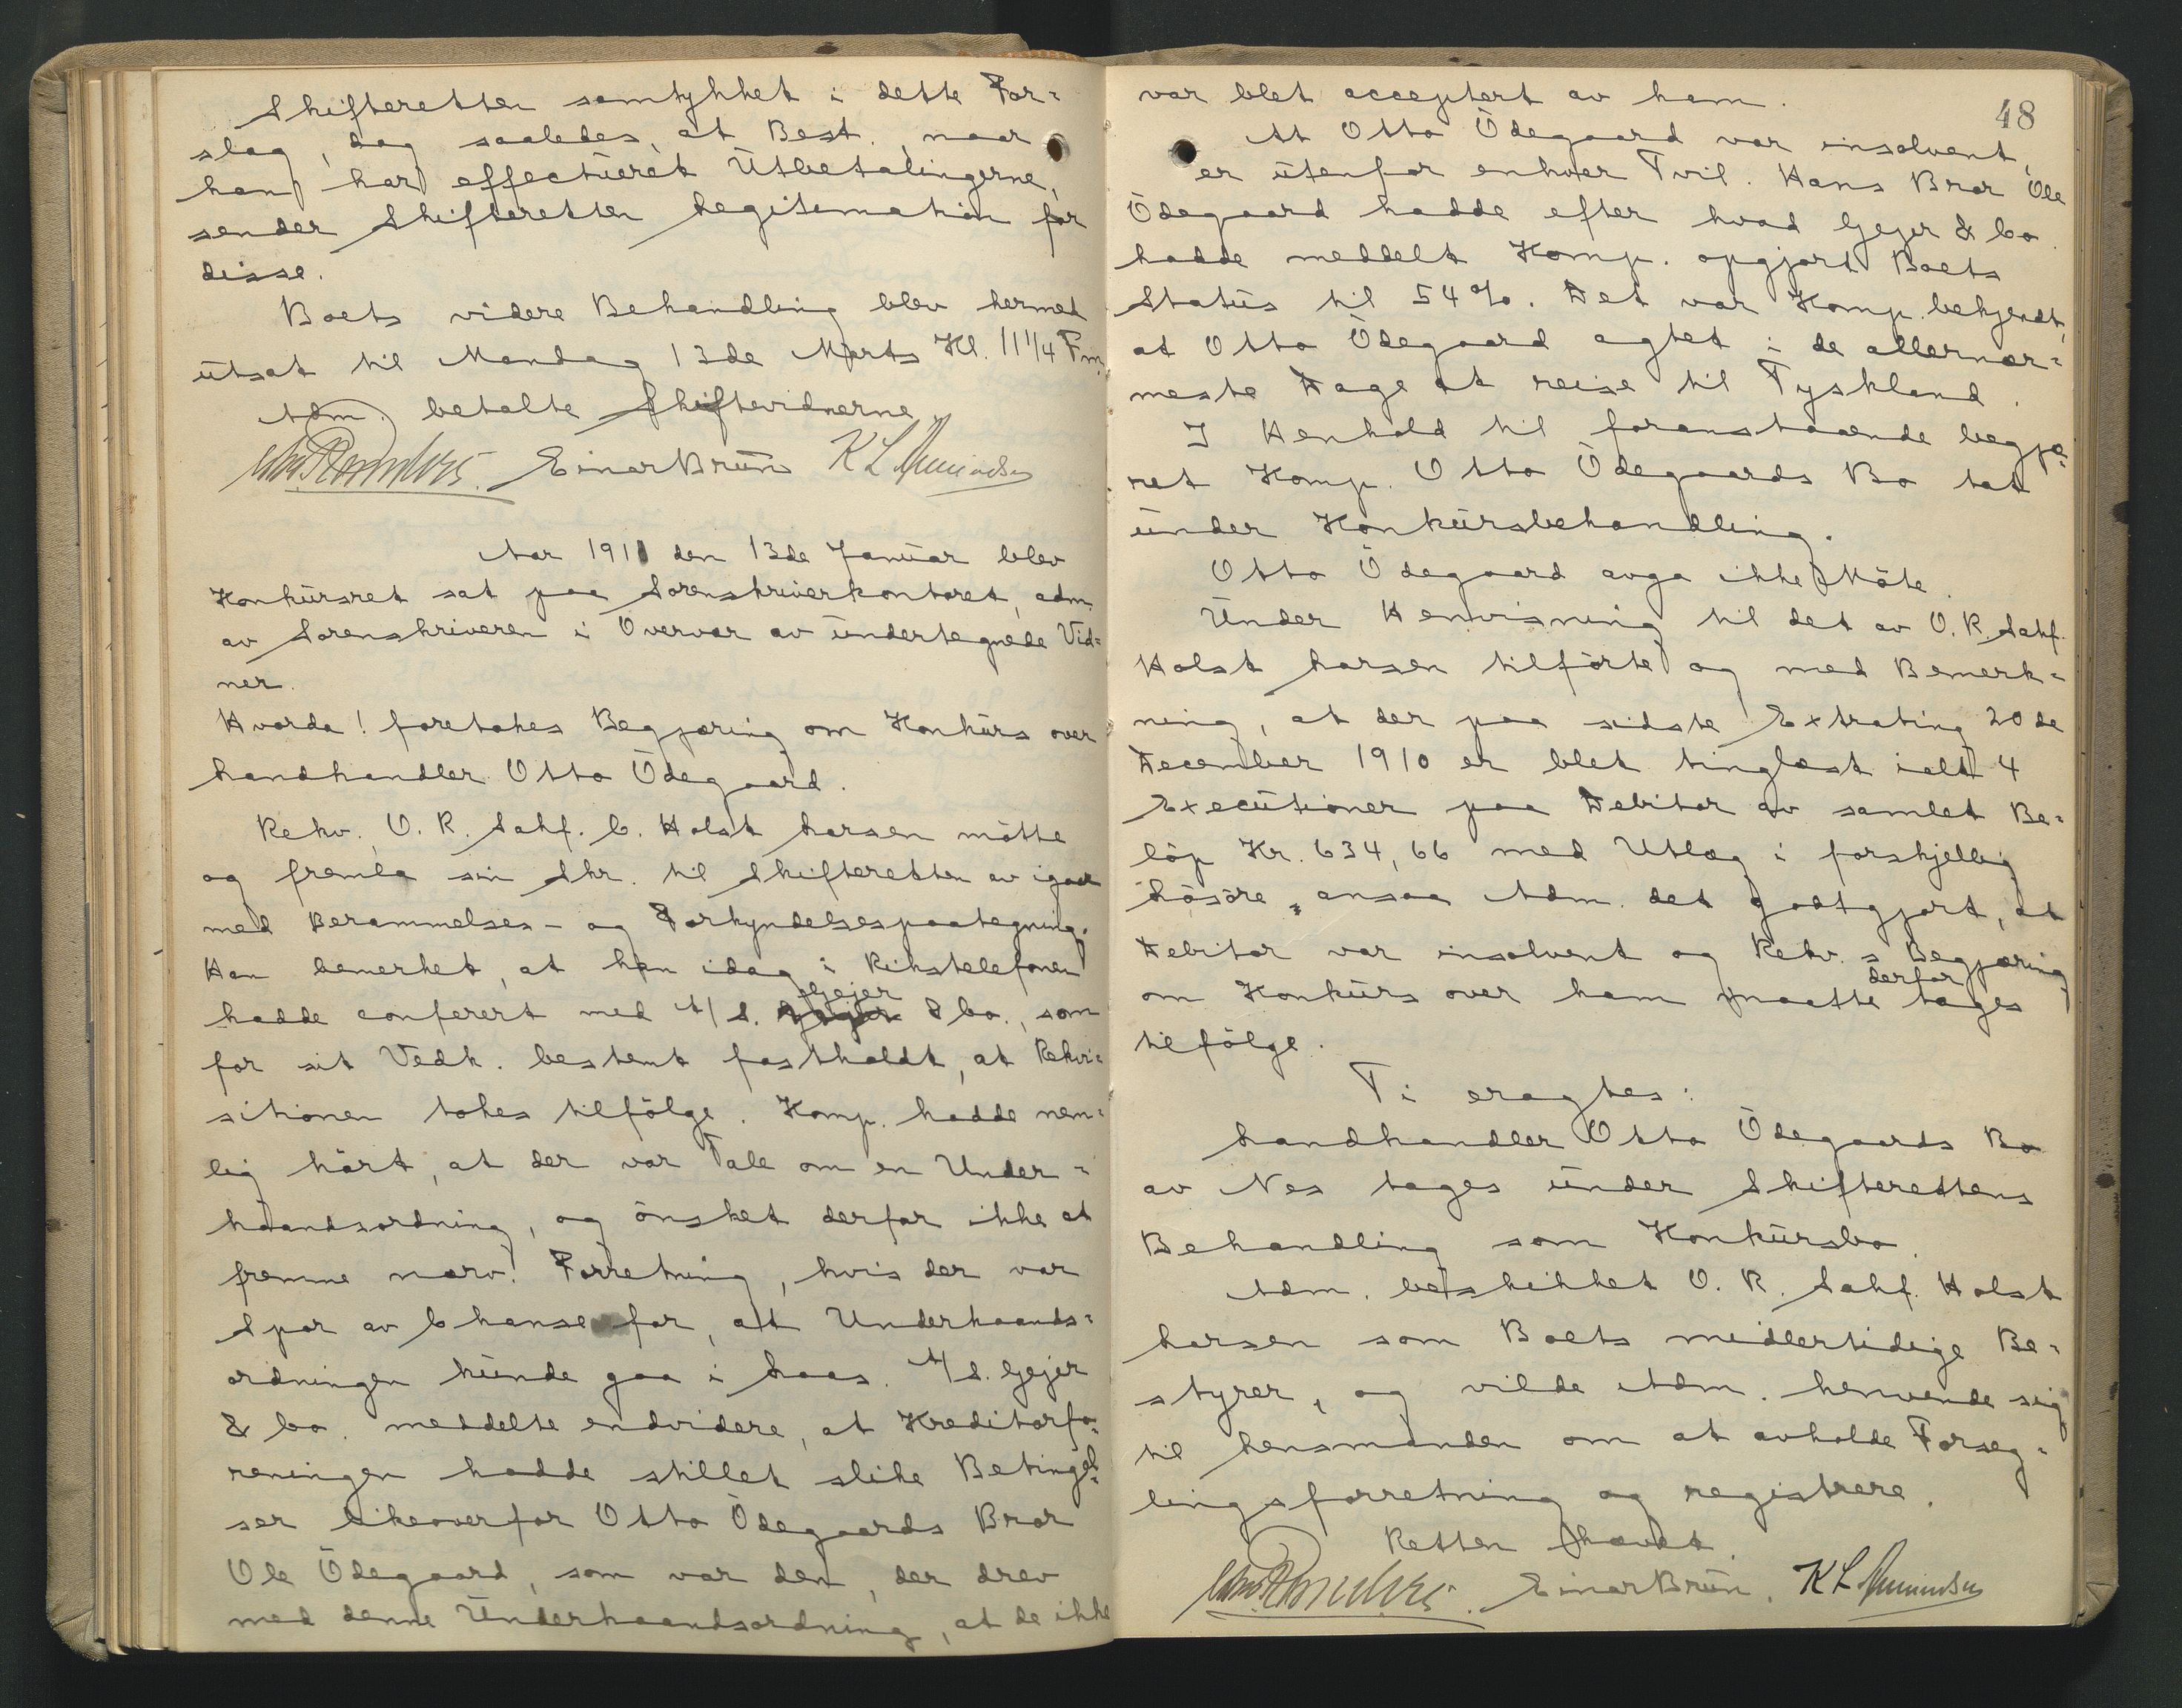 Skifteretten samtykket i dette For=
slag, dog saaledes, at Best., naar
han har effectueret Utbetalingerne,
sender Skifteretten Legitimation for
disse.
Boets videre Behandling blev hermed
utsat til Mandag 13de Marts Kl. 11 1/4 Fm.
Adm. betalte Skiftevidnerne.
Einar Bruun K L Amundsen
Aar 1911 den 13de Januar blev
Konkursret sat paa Sorenskriverkontoret, adm.
av Sorenskriveren i Overvær av undertegnede Vid=
ner.
Hvorda! foretokes Begjæring om Konkurs over
Landhandler Otto Ödegaard.
Rekv. O. R. Sakf. C. Holst Larsen mötte
og fremla sin Skr. til Skifteretten av igaar
med Berammelses- og Forkyndelsespaategning.
Han bemerket, at han idag i Rikstelefonen
hadde conferert med A/S. Gejer & Co., som
for sit Vedk. bestemt fastholdt, at Rekvi=
sitionen tokes tilfölge. Komp. hadde nem=
lig hört, at der var Tale om en Under=
haandsordning, og önsket derfor ikke at
fremme nærv. Forretning, hvis der var
Spor av Chanse for, at Underhaands=
ordningen kunde gaa i Laas. A/S. Gejer
& Co. meddelte endvidere, at Kreditorfo=
reningen hadde stillet slike Betingel=
ser likeoverfor Otto Ödegaards Bror
Ole Ödegaard, som var den, der drev
med denne Underhaandsordning, at de ikke
48
var blet acceptert av ham.
At Otto Ödegaard var insolvent,
er utenfor enhver Tvil. Hans Bror Ole
Ödegaard hadde efter hvad Gejer & Co.
hadde meddelt Komp. opgjort Boets
Status til 54 %. Det var Komp. bekjendt,
at Otto Ödegaard agtet i de allernær=
meste Dage at reise til Tyskland.
I Henhold til foranstaaende begjæ=
ret Komp. Otto Ödegaards Bo tat
under Konkursbehandling.
Otto Ödegaard avga ikke Möte.
Under Henvisning til det av O. R. Sakf.
Holst Larsen tilförte og med Bemerk=
ning, at der paa sidste Extrating 20de
December 1910 er blet tinglæst ialt 4
Executioner paa Debitor av samlet Be=
löp Kr. 634,66 med Utlæg i forskjellig
Lösöre, ansaa Adm. det godtgjort, at
Debitor var insolvent og Rekv.s Begjæring
om Konkurs over ham maatte derfor tages
tilfölge.
Ti eragtes:
Landhandler Otto Ödegaards Bo
av Nes tages under Skifterettens
Behandling som Konkursbo.
Adm. beskikket O. R. Sakf. Holst
Larsen som Boets midlertidige Be=
styrer, og vilde Adm. henvende sig
til Lensmanden om at avholde Forseg=
lingsforretning og registrere.
Retten hævet.
Einar Bruun. K L Amundsen